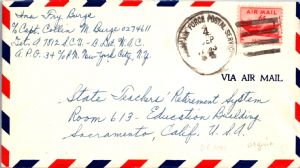 Ina Fry Burge
c/o Capt. Collin M. Burge 0274611
Det. A 7012 S.C.U. - A Det. M.A.C.
A.P.O. 34 c/o P.M. New York City, N.Y.
AIR FORCE POSTAL SERVICE
4
SEP
AIR MAIL
6¢
VIA AIR MAIL
State Teachers' Retirement System
Room 613 - Education Building
Sacramento, Calif. U.S.A.